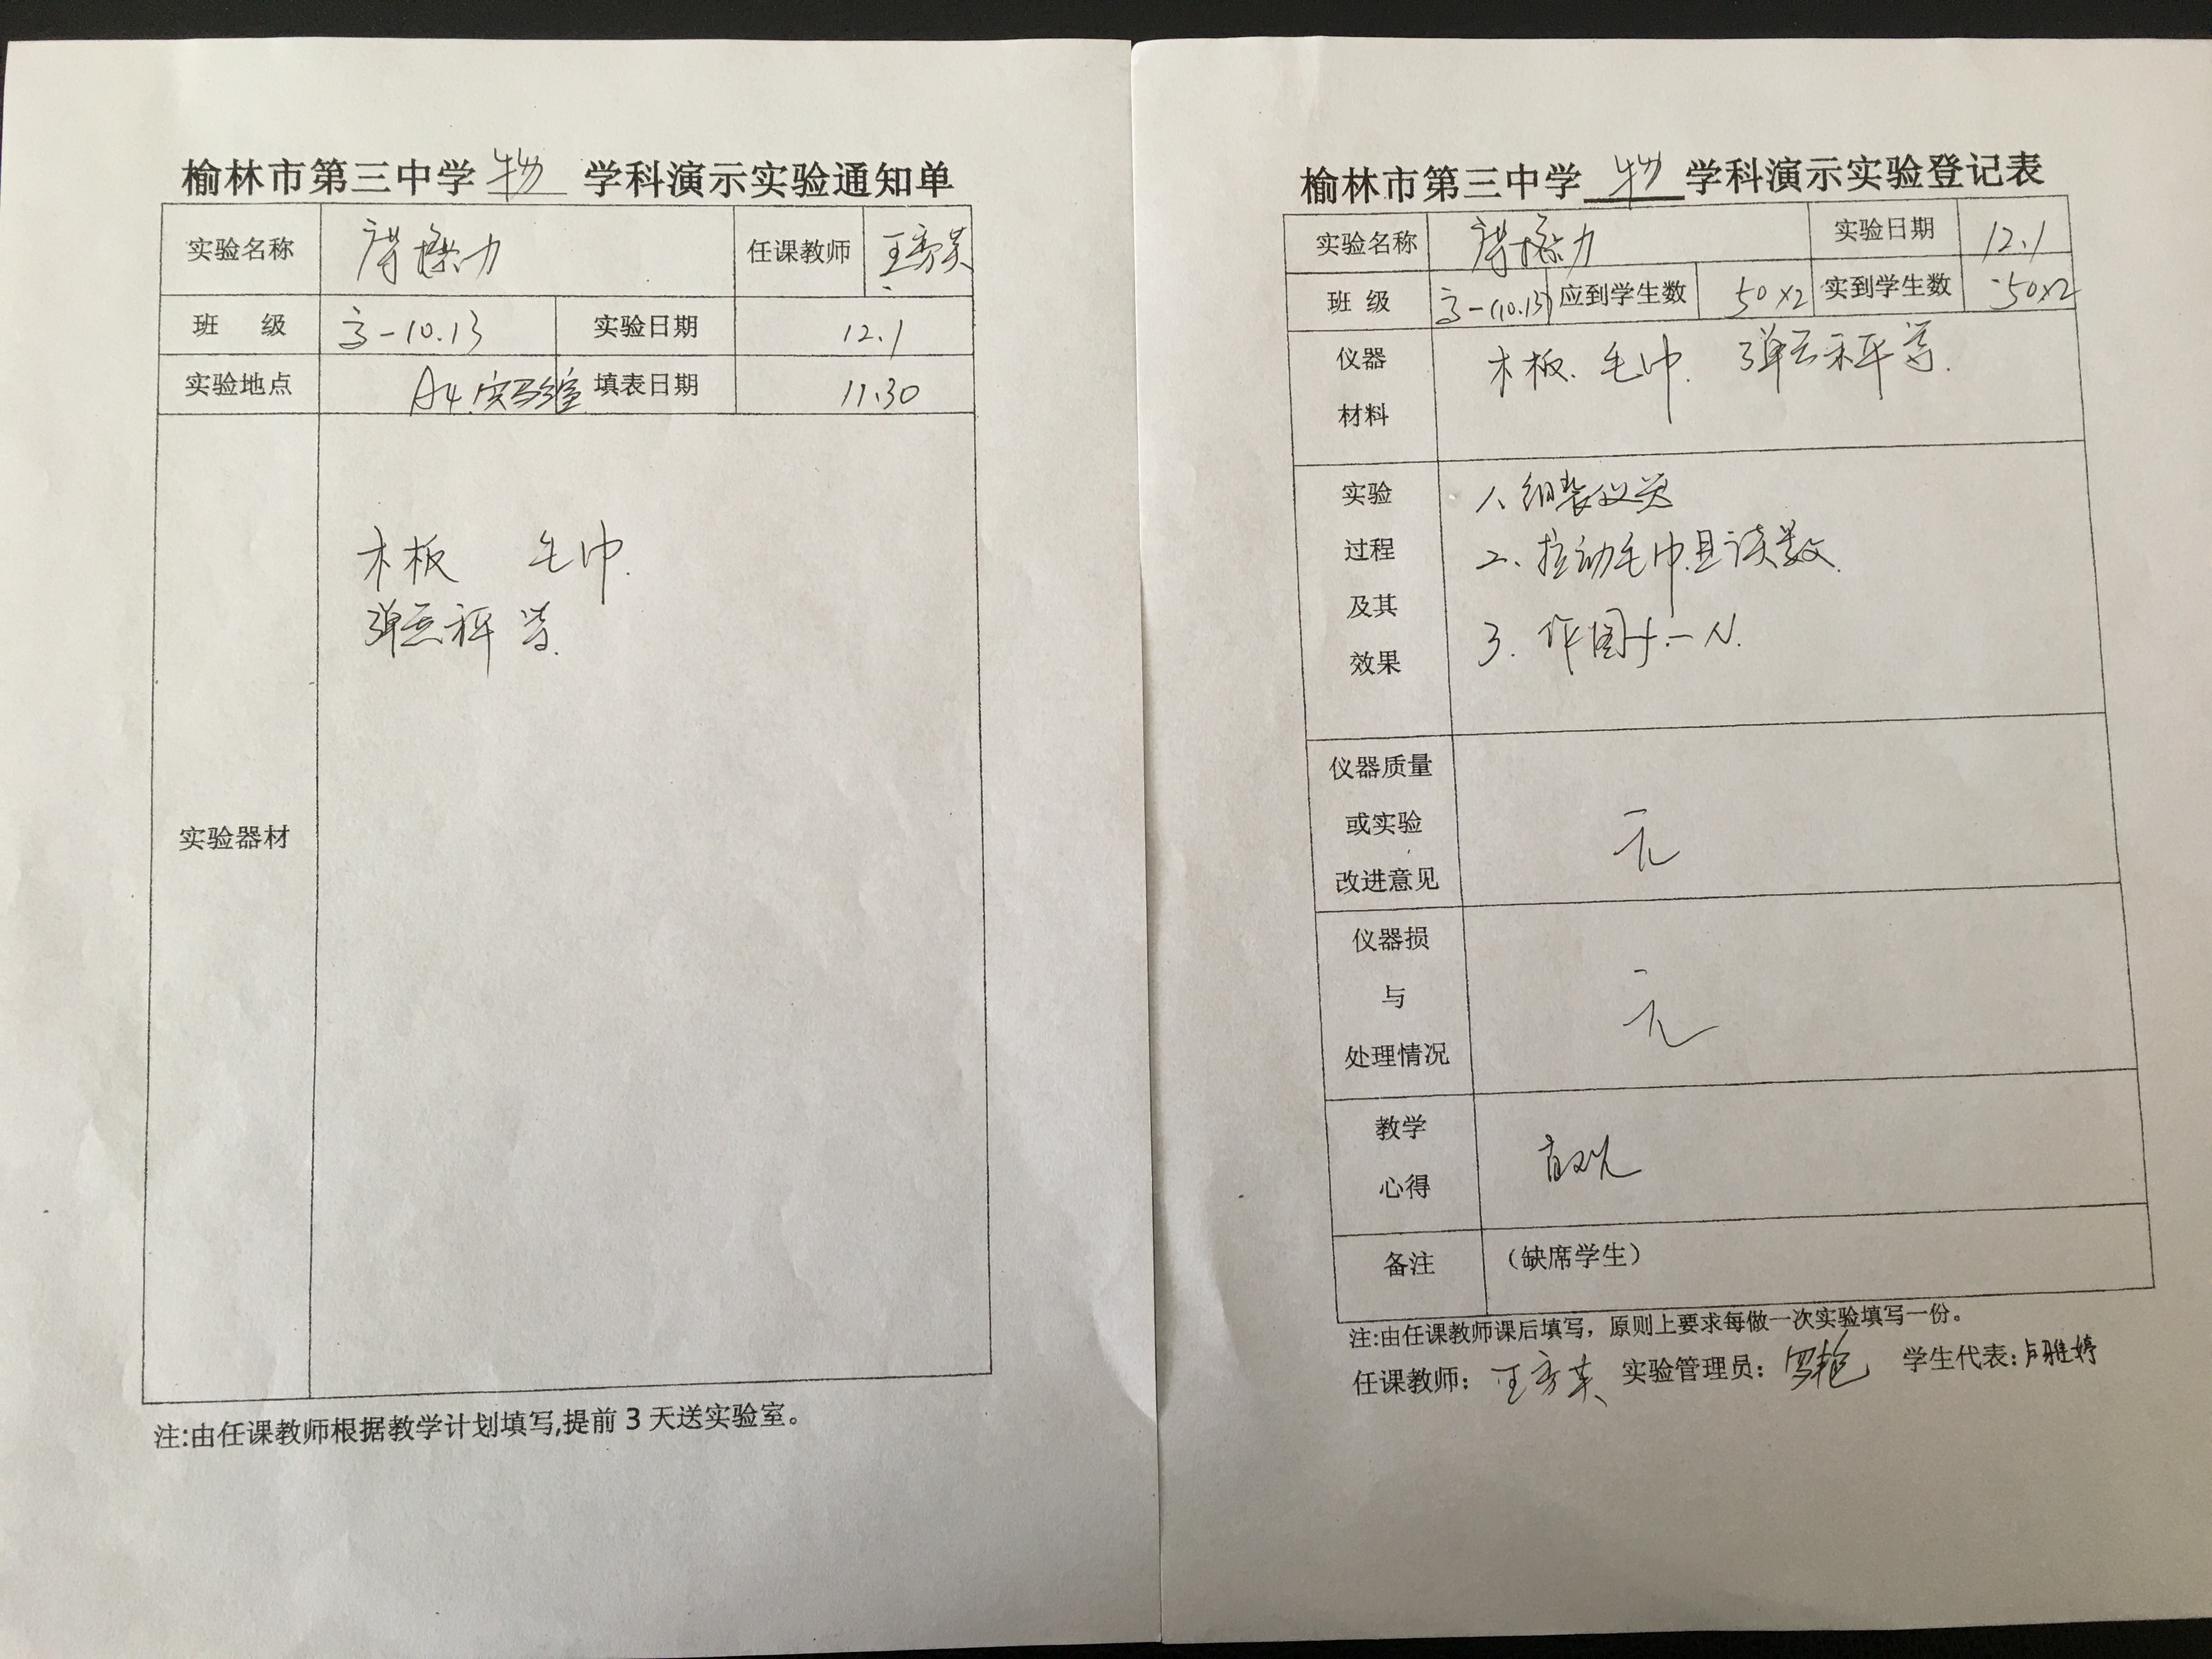 榆林市第三中学 物 学科演示实验通知单
实验名称 摩擦力 任课教师 王彦英
班 级 高一10.13 实验日期 12.1
实验地点 A4.实验室 填表日期 11.30
实验器材
木板 毛巾.
弹簧秤 等.
注:由任课教师根据教学计划填写,提前 3 天送实验室。
榆林市第三中学 物 学科演示实验登记表
实验名称 摩擦力 实验日期 12.1
班 级 高一(10.13) 应到学生数 50×2 实到学生数 50×2
仪器
材料
木板. 毛巾. 弹簧秤等.
实验
过程
及其
效果
1、组装仪器
2、拉动毛巾且读数.
3. 作图f—N.
仪器质量
或实验
改进意见
无
仪器损
与
处理情况
无
教学
心得
直观
备注 (缺席学生)
注:由任课教师课后填写，原则上要求每做一次实验填写一份。
任课教师: 王彦英 实验管理员: 罗艳 学生代表: 卢雅婷